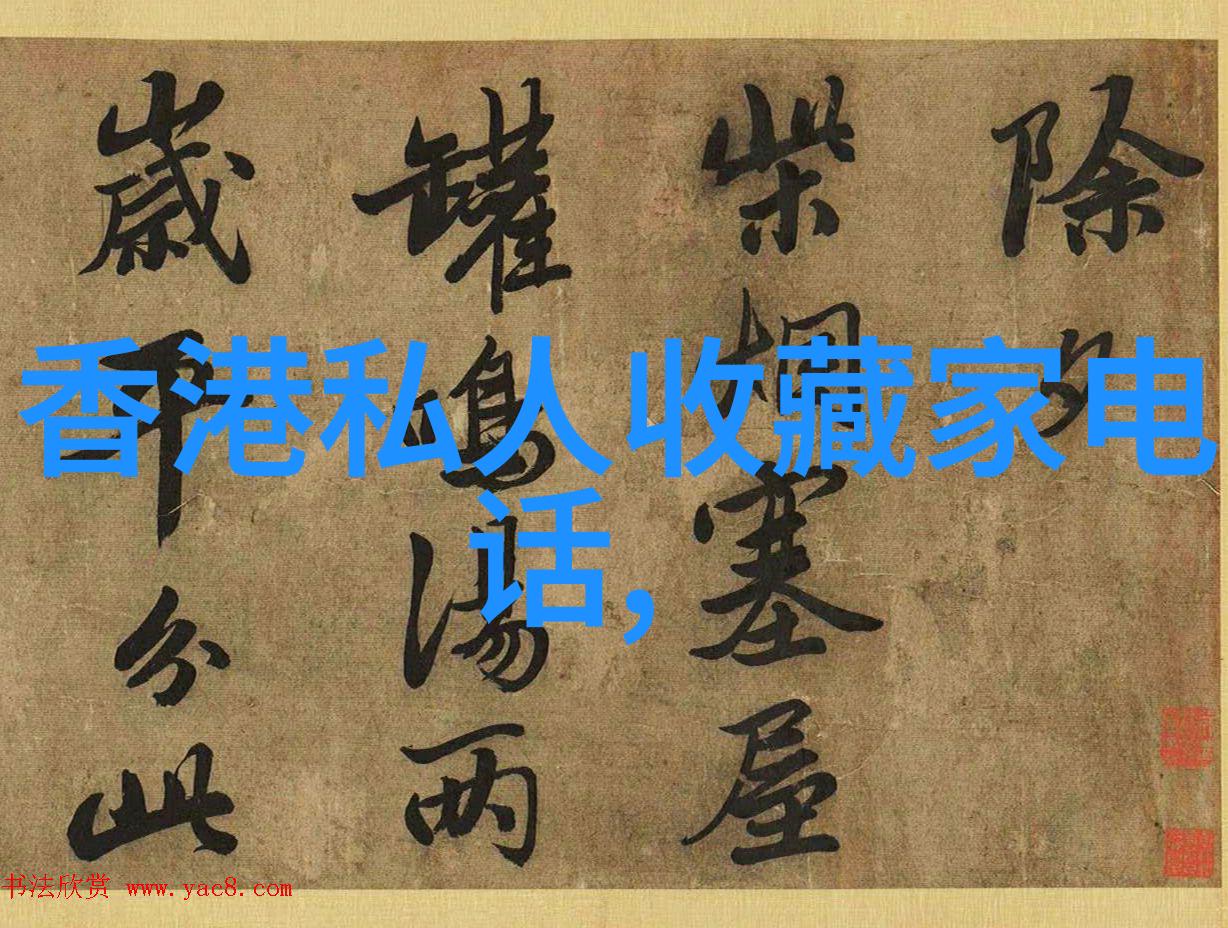 除夕
柴烟塞屋
罐鳴湯两
歲平分此
香港私人收藏家电
话,
书法欣赏 www.yac8.com